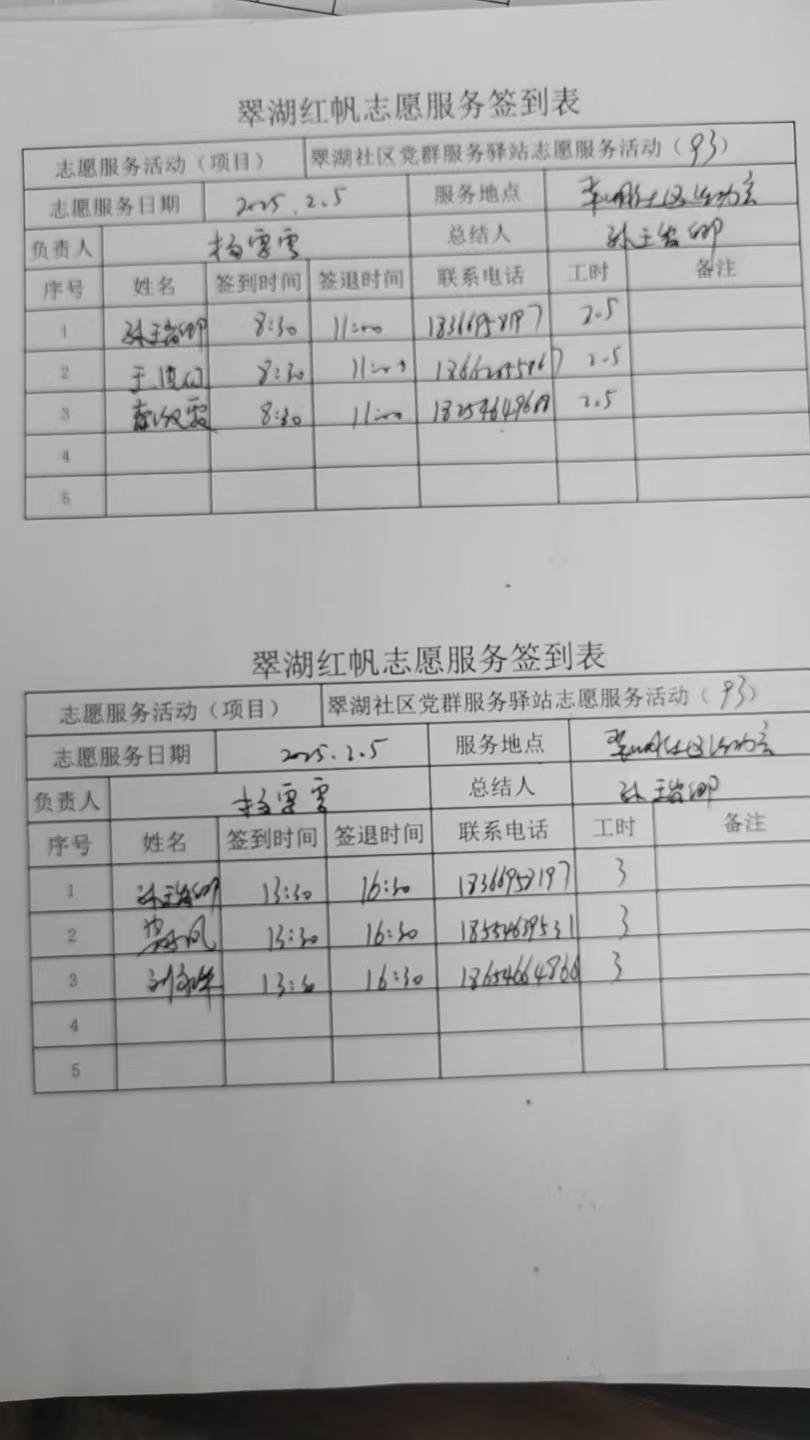 翠湖红帆志愿服务签到表
志愿服务活动（项目） 翠湖社区党群服务驿站志愿服务活动（93）
志愿服务日期 2025.2.5 服务地点
负责人 杨雪雪 总结人
序号 姓名 签到时间 签退时间 联系电话 工时 备注
1 8:30 11:00 18366958197 2.5
2 8:30 11:00 2.5
3 8:30 11:00 2.5
4
5
翠湖红帆志愿服务签到表
志愿服务活动（项目） 翠湖社区党群服务驿站志愿服务活动（93）
志愿服务日期 2025.2.5 服务地点
负责人 杨雪雪 总结人
序号 姓名 签到时间 签退时间 联系电话 工时 备注
1 13:30 16:30 18366958197 3
2 13:30 16:30 18554639531 3
3 13:30 16:30 18654664866 3
4
5